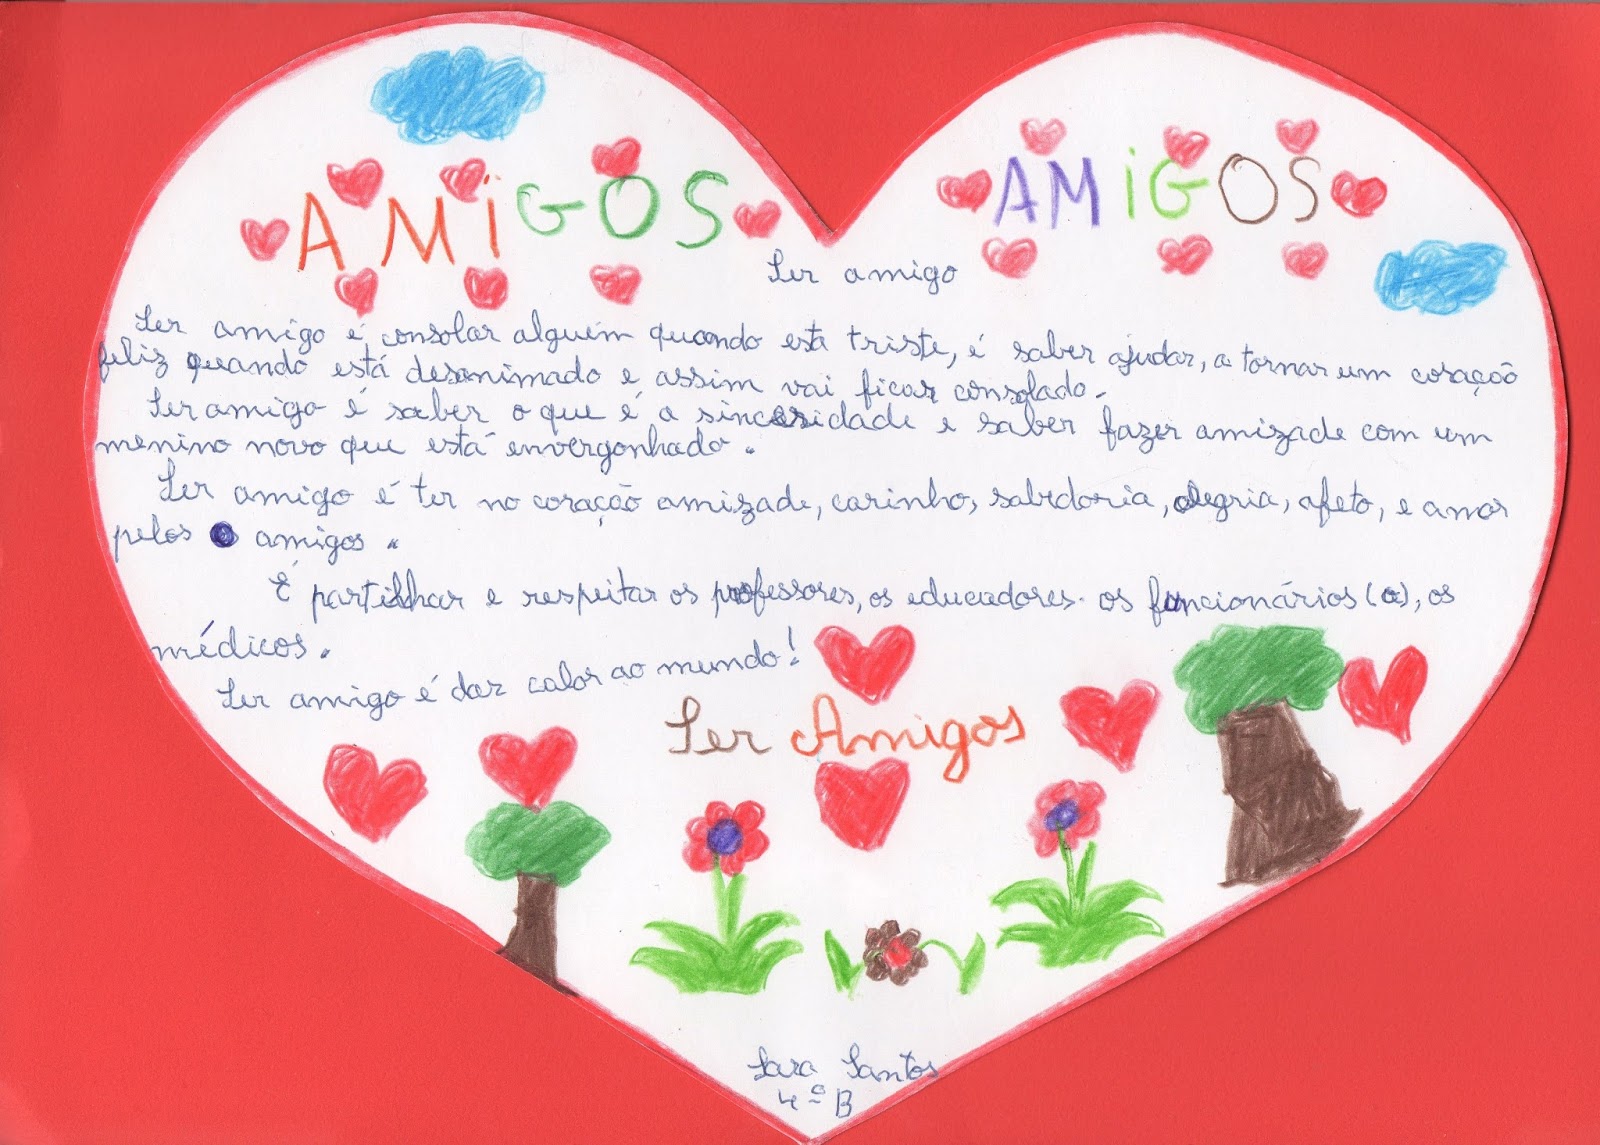 AMiGOS
AMiGOS
Ser amigo
Ser amigo é consolar alguém quando está triste, é saber ajudar, a tornar um coração
feliz quando está desanimado e assim vai ficar consolado.
Ser amigo é saber o que é a sinceridade e saber fazer amizade com um
menino novo que está envergonhado.
Ser amigo é ter no coração amizade, carinho, sabedoria, alegria, afeto, e amor
pelos amigos.
É partilhar e respeitar os professores, os educadores. os funcionários (a), os
médicos.
Ser amigo é dar calor ao mundo!
Ser Amigos
Sara Santos
4º B